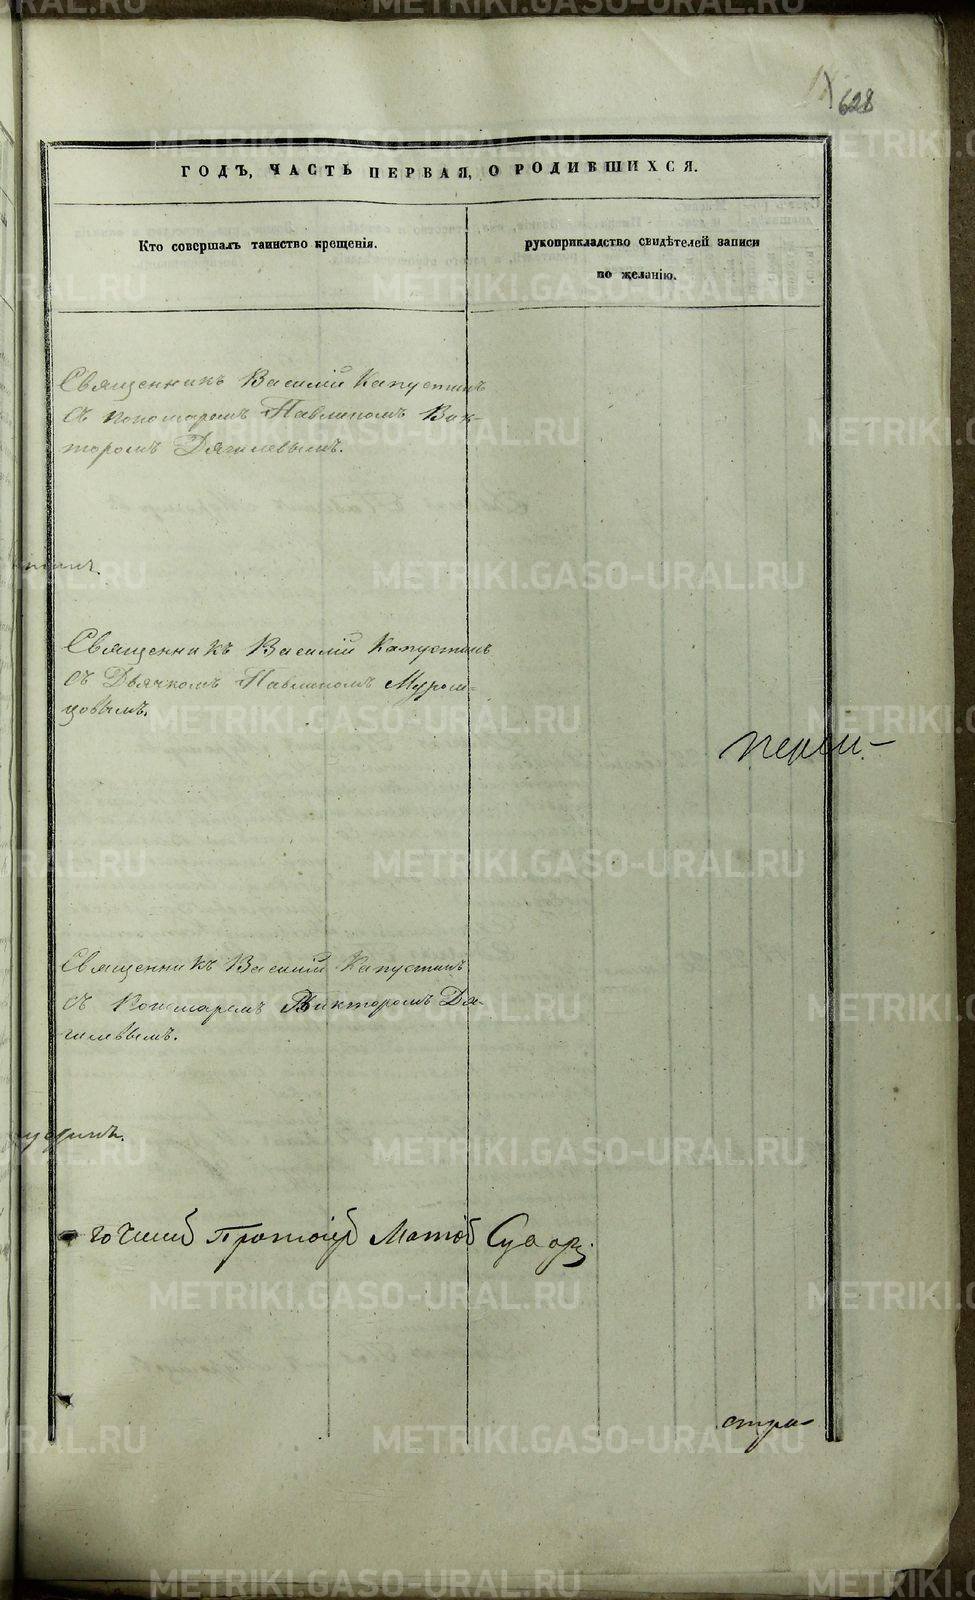 628
ГОДЪ, ЧАСТЬ ПЕРВАЯ, О РОДИВШИХСЯ.
Кто совершалъ таинство крещенія.
рукоприкладство свидѣтелей записи
по желанію.
Священникъ Василій Капустинъ
съ пономаремъ Павлиномъ Вик-
торомъ Дягилевымъ.
Священникъ Василій Капустинъ
съ Дьячкомъ Павлиномъ Муром-
цовымъ.
Священникъ Василій Капустинъ
съ Пономаремъ Викторомъ Дя-
гилевымъ.
Протоіер
стра-
METRIKI.GASO-URAL.RU